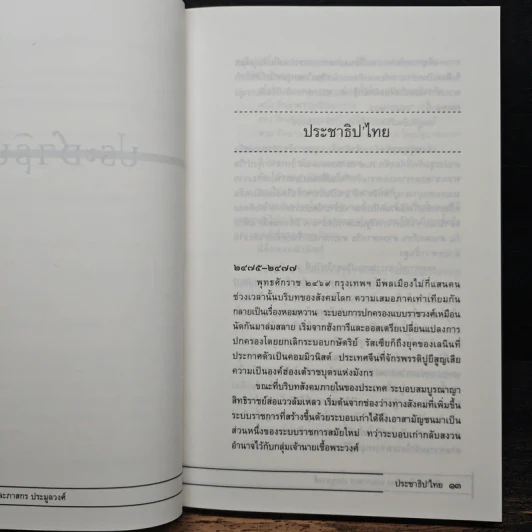 ประชาธิป'ไทย
๒๔๗๕–๒๔๗๗
พุทธศักราช ๒๔๖๙ กรุงเทพฯ มีพลเมืองไม่กี่แสนคน
ช่วงเวลานั้นบริบทของสังคมโลก ความเสมอภาคเท่าเทียมกัน
กลายเป็นเรื่องหอมหวาน ระบอบการปกครองแบบราชวงศ์เหมือน
นัดกันมาล่มสลาย เริ่มจากฮังการีและออสเตรียเปลี่ยนแปลงการ
ปกครองโดยยกเลิกระบอบกษัตริย์ รัสเซียก็ถึงยุคของเลนินที่
ประกาศตัวเป็นคอมมิวนิสต์ ประเทศจีนที่จักรพรรดิปูยีสูญเสีย
ความเป็นองค์ฮ่องเต้ราชบุตรแห่งมังกร
ขณะที่บริบทสังคมภายในของประเทศ ระบอบสมบูรณาญา
สิทธิราชย์ส่อแววล้มเหลว เริ่มต้นจากช่องว่างทางสังคมที่เพิ่มขึ้น
ระบบราชการที่สร้างขึ้นด้วยระบอบเก่าได้ดึงเอาสามัญชนมาเป็น
ส่วนหนึ่งของระบบราชการสมัยใหม่ ทว่าระบอบเก่ากลับสงวน
อำนาจไว้กับกลุ่มเจ้านายเชื้อพระวงศ์
ประชาธิป'ไทย ๑๓
ละภาสกร ประมูลวงศ์